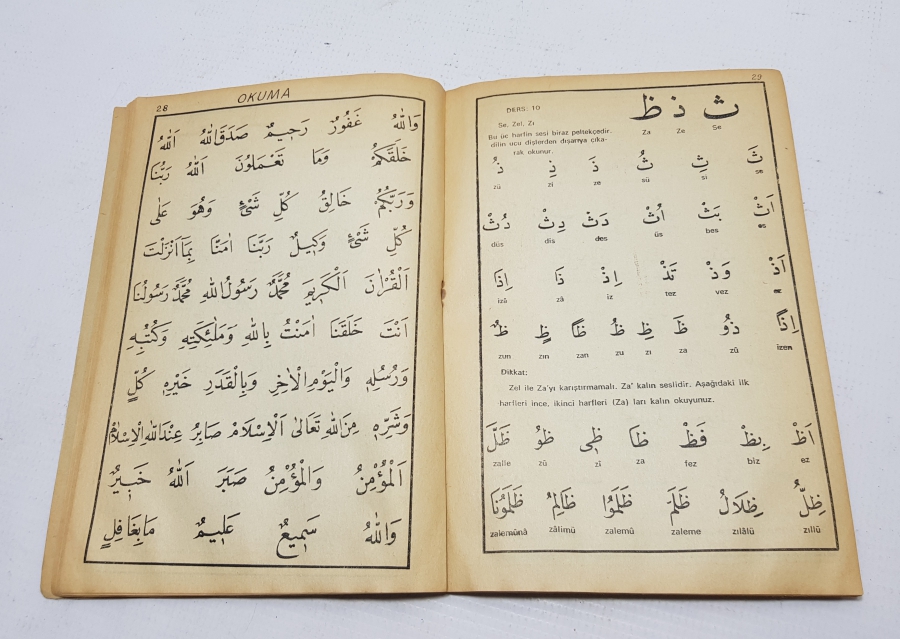 28
OKUMA
وَاللّٰهُ غَفُورٌ رَحِيمٌ صَدَقَ اللّٰهُ اَللّٰهُ
خَلَقَكُمْ وَمَا تَعْمَلُونَ اَللّٰهُ رَبُّنَا
وَرَبُّكُمْ خَالِقُ كُلِّ شَىْءٍ وَهُوَ عَلٰى
كُلِّ شَىْءٍ وَكِيلٌ رَبَّنَا اٰمَنَّا بِمَا اَنْزَلْتَ
اَلْقُرْاٰنَ اَلْكَرِيمَ مُحَمَّدٌ رَسُولُ اللّٰهِ مُحَمَّدٌ رَسُولُنَا
اَنْتَ خَلَقْتَنَا اٰمَنْتُ بِاللّٰهِ وَمَلٰئِكَتِهِ وَكُتُبِهِ
وَرُسُلِهِ وَالْيَوْمِ الْاٰخِرِ وَبِالْقَدَرِ خَيْرِهِ كُلٍّ
وَشَرِّهِ مِنَ اللّٰهِ تَعَالٰى اَلْاِسْلَامْ صَابِرُ عِنْدَ اللّٰهِ الْاِسْلَامُ
اَلْمُؤْمِنُ وَالْمُؤْمِنُ صَبَرَ اَللّٰهُ خَبِيرٌ
وَاللّٰهُ سَمِيعٌ عَلِيمٌ مَا بِغَافِلٍ
29
DERS: 10 ث ذ ظ
Se, Zel, Zı Za Ze Se
Bu üç harfin sesi biraz peltekçedir.
dilin ucu dişlerden dışarıya çıka-
rak okunur.
ثَ ثِ ثُ ذَ ذِ ذُ
se si sü ze zi zü
اَثْ بَثْ اُثْ دَثْ دِثْ دُثْ
es bes üs des dis düs
اَذْ وَذْ تَذْ اِذْ ذَا اِذَا
ez vez tez iz zâ izâ
اِذًا ذوُ ظَ ظِ ظُ ظًا ظٍ ظٌ
izen zû za zı zu zan zın zun
Dikkat:
Zel ile Za'yı karıştırmamalı. Za' kalın seslidir. Aşağıdaki ilk
harfleri ince, ikinci harfleri (Za) ları kalın okuyunuz.
اَظْ بِظْ فَظْ ظَا ظِى ظوُ ظَلَّ
ez biz fez za zî zû zalle
ظِلُّ ظِلَالُ ظَلَمَ ظَلَمُوا ظَالِمُ ظَلَمُونَا
zıllü zılâlü zaleme zalemû zâlimü zalemûnâ